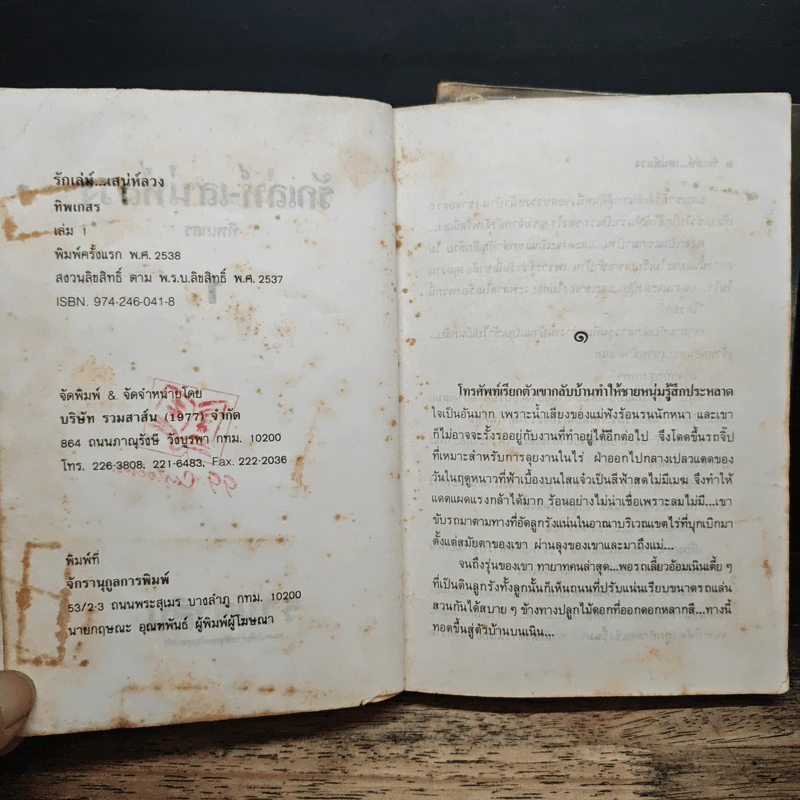 รักเล่ห์...เสน่ห์ลวง
ทิพเกสร
เล่ม 1
พิมพ์ครั้งแรก พ.ศ. 2538
สงวนลิขสิทธิ์ ตาม พ.ร.บ.ลิขสิทธิ์ พ.ศ. 2537
ISBN. 974-246-041-8
จัดพิมพ์ & จัดจำหน่ายโดย
บริษัท รวมสาส์น (1977) จำกัด
864 ถนนภาณุรังษี วังบูรพา กทม. 10200
โทร. 226-3808, 221-6483, Fax. 222-2036
พิมพ์ที่
จักรานุกูลการพิมพ์
53/2-3 ถนนพระสุเมร บางลำภู กทม. 10200
นายกฤษณะ อุณฑพันธ์ ผู้พิมพ์ผู้โฆษณา
๑
โทรศัพท์เรียกตัวเขากลับบ้านทำให้ชายหนุ่มรู้สึกประหลาด
ใจเป็นอันมาก เพราะน้ำเสียงของแม่ฟังร้อนรนนักหนา และเขา
ก็ไม่อาจจะรั้งรออยู่กับงานที่ทำอยู่ได้อีกต่อไป จึงโดดขึ้นรถจิ๊ป
ที่เหมาะสำหรับการลุยงานในไร่ ฝ่าออกไปกลางเปลวแดดของ
วันในฤดูหนาวที่ฟ้าเบื้องบนใสแจ๋วเป็นสีฟ้าสดไม่มีเมฆ จึงทำให้
แดดแผดแรงกล้าได้มาก ร้อนอย่างไม่น่าเชื่อเพราะลมไม่มี...เขา
ขับรถมาตามทางที่อัดลูกรังแน่นในอาณาบริเวณเขตไร่ที่บุกเบิกมา
ตั้งแต่สมัยตาของเขา ผ่านลุงของเขาและมาถึงแม่...
จนถึงรุ่นของเขา ทายาทคนล่าสุด...พอรถเลี้ยวอ้อมเนินเตี้ย ๆ
ที่เป็นดินลูกรังทั้งลูกนั้นก็เห็นถนนที่ปรับแน่นเรียบขนาดรถแล่น
สวนกันได้สบาย ๆ ข้างทางปลูกไม้ดอกที่ออกดอกหลากสี...ทางนี้
ทอดขึ้นสู่ตัวบ้านบนเนิน...